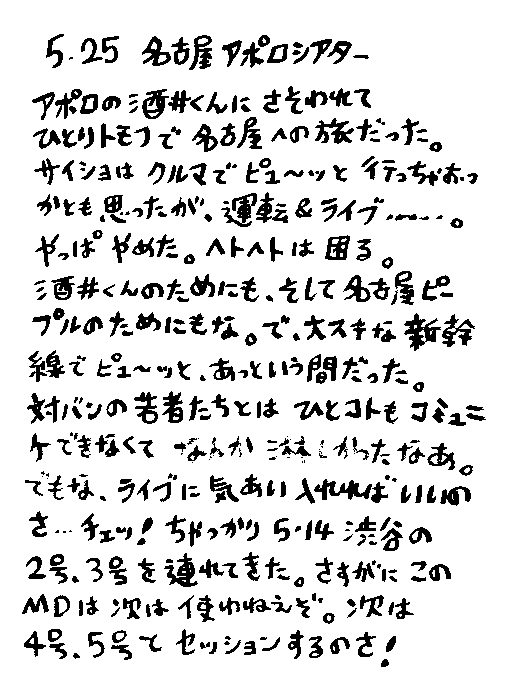 5.25 名古屋アポロシアター
アポロの酒井くんに さそわれて
ひとりトモフで 名古屋への旅だった。
サイショは クルマで ピュ〜ッと 行っちゃおっ
かとも思ったが、運転&ライブ……。
やっぱ やめた。ヘトヘトは 困る。
酒井くんのためにも、そして名古屋ピー
プルのためにもな。で、大スキな 新幹
線で ピュ〜ッと、あっという間だった。
対バンの若者たちとは ひとコトも コミュニ
ケできなくて なんか 淋しかったなあ。
でもな、ライブに気あい入れればいいの
さ…チェッ! ちゃっかり 5・14 渋谷の
2号、3号を連れてきた。さすがに この
MDは 次は 使わねえぞ。次は
4号、5号と セッションするのさ!